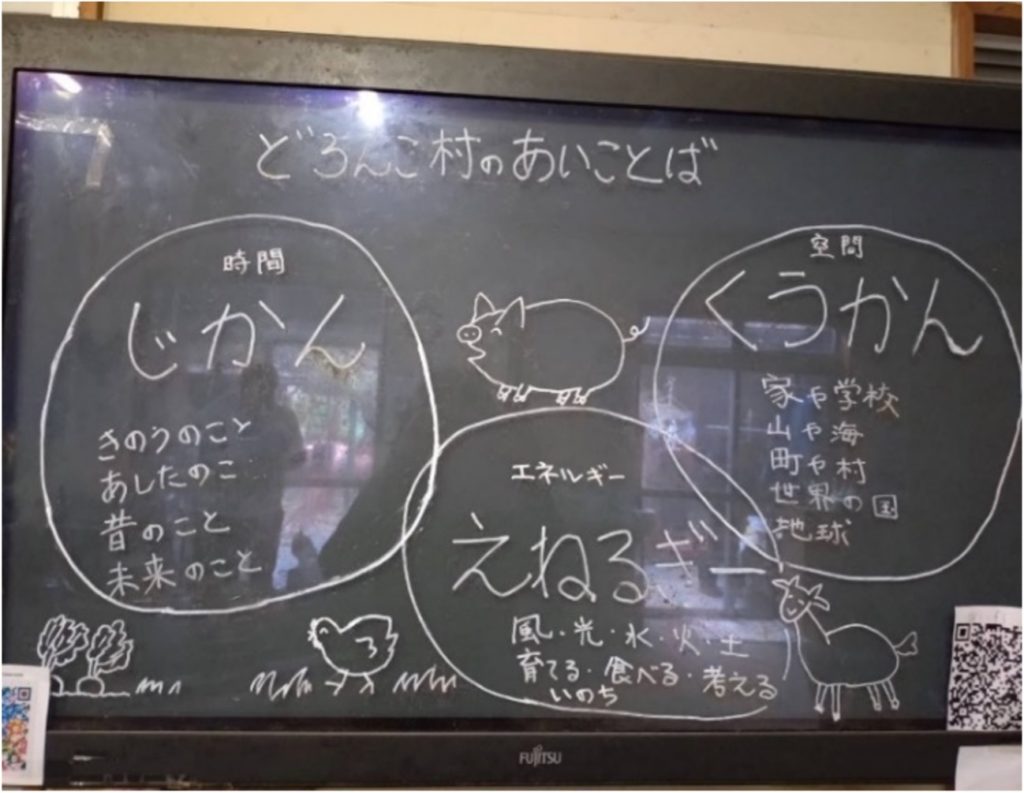 どろんこ村のあいことば
時間
じかん
きのうのこと
あしたのこ
昔のこと
未来のこと
空間
くうかん
家や学校
山や海
町や村
世界の国
地球
エネルギー
えねるぎー
風・光・水・火・土
育てる・食べる・考える
いのち
FUJITSU